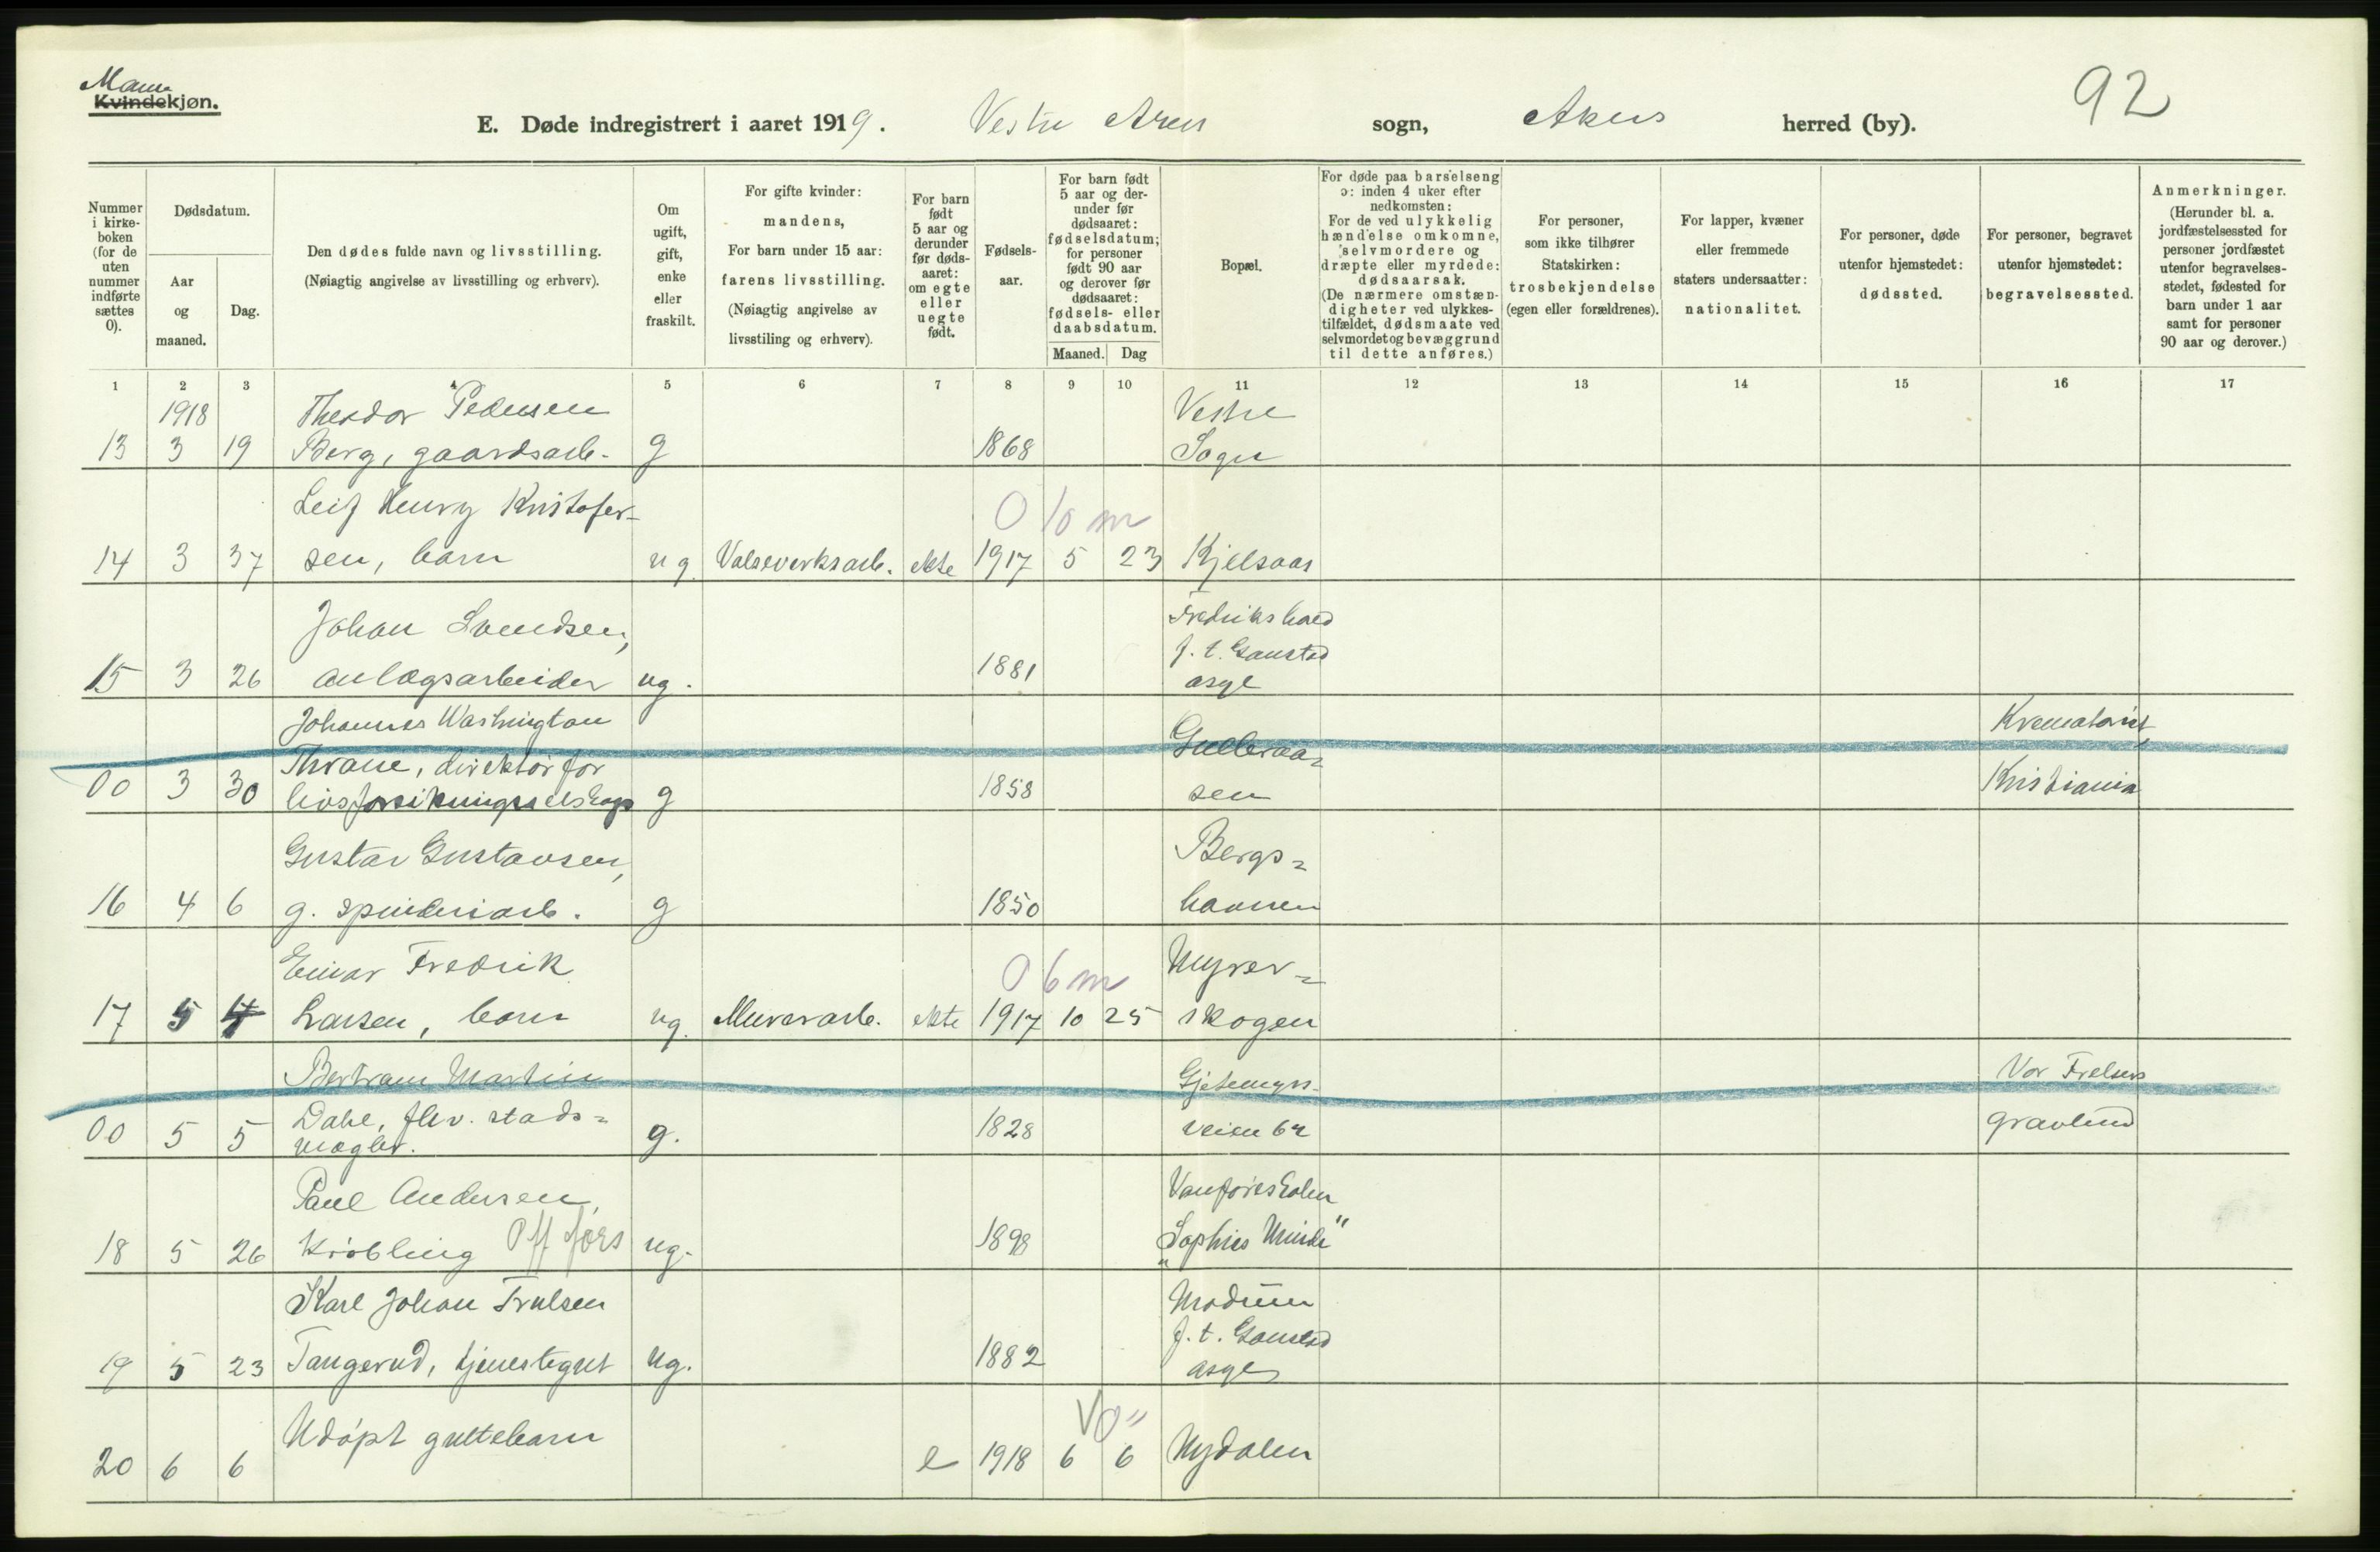 Mann
Kvindekjøn.
E. Døde indregistrert i aaret 1919. Vestre Aker sogn, Akers herred (by).
92
Nummer i kirkeboken (for de uten nummer indførte sættes 0).
Dødsdatum.
Aar og maaned.
Dag.
Den dødes fulde navn og livsstilling.
(Nøiagtig angivelse av livsstilling og erhverv).
Om ugift, gift, enke eller fraskilt.
For gifte kvinder:
mandens,
For barn under 15 aar:
farens livsstilling.
(Nøiagtig angivelse av
livsstiling og erhverv).
For barn født 5 aar og derunder før dødsaaret: om egte eller uegte født.
Fødselsaar.
For barn født 5 aar og derunder før dødsaaret: fødselsdatum; for personer født 90 aar og derover før dødsaaret: fødsels- eller daabsdatum.
Maaned. Dag
Bopæl.
For døde paa barselseng ɔ: inden 4 uker efter nedkomsten:
For de ved ulykkelig hændelse omkomne, selvmordere og dræpte eller myrdede: dødsaarsak.
(De nærmere omstændigheter ved ulykkestilfældet, dødsmaate ved selvmordet og bevæggrund til dette anføres.)
For personer, som ikke tilhører Statskirken: trosbekjendelse (egen eller forældrenes).
For lapper, kvæner eller fremmede staters undersaatter: nationalitet.
For personer, døde utenfor hjemstedet: dødssted.
For personer, begravet utenfor hjemstedet: begravelsessted.
Anmerkninger.
(Herunder bl. a. jordfæstelsessted for personer jordfæstet utenfor begravelsesstedet, fødested for barn under 1 aar samt for personer 90 aar og derover.)
1 2 3 4 5 6 7 8 9 10 11 12 13 14 15 16 17
1918 Theodor Pedersen Vestre
13 3 19 Berg, gaardsarb. g 1868 Sogn
Leif Henry Kristofer- 0 10 m
14 3 37 sen, barn ug Valseverksarb. ekte 1917 5 23 Kjelsaas
Johan Svendsen, Fredrikshald
f. t. Gaustad
15 3 26 anlægsarbeider ug. 1881 asyl
Johannes Washington Krematoriet,
Thrane, direktør for Gulleraa-
00 3 30 livsforsikringsselskap g 1858 sen Kristiania
Gustav Gustavsen, Bergs-
16 4 6 g. spinderiarb. g 1850 havnen
Einar Fredrik 0 6 m Myrer-
17 5 4 Larsen, barn ug. Murerarb. ekte 1917 10 25 skogen
Bertram Martin Gjetemyrs- Vor Frelsers
Dahl, fhv. stads-
00 5 5 mægler. g. 1828 veien 62 gravlund
Paul Andersen, Vanføreskolen
18 5 26 Krøbling Off fors ug. 1898 „Sophies Minde"
Karl Johan Trulsen Modum
f. t. Gaustad
19 5 23 Tangerud, tjenestegut ug. 1882 asyl
Udøpt guttebarn
20 6 6 e 1918 6 6 Nydalen